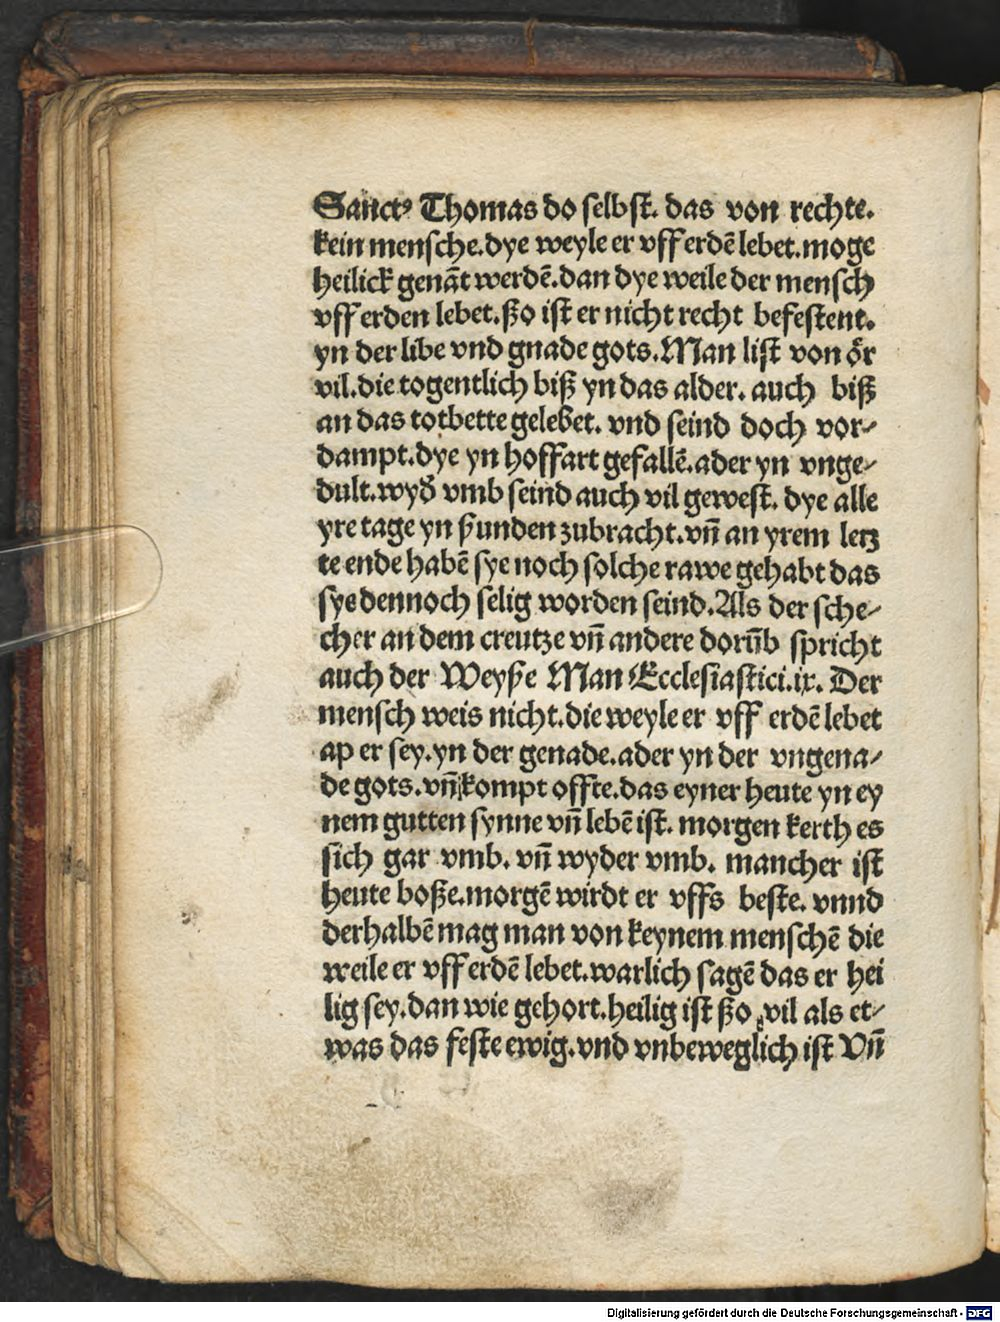 Sanctꝰ Thomas do selbst. das von rechte.
kein mensche.dye weyle er vff erdē lebet.moge
heilick genāt werdē.dan dye weile der mensch
vff erden lebet.ßo ist er nicht recht befestent.
yn der libe vnd gnade gots.Man list von ōr
vil.die togentlich biß yn das alder. auch biß
an das totbette gelebet. vnd seind doch vor⸗
dampt.dye yn hoffart gefallē.ader yn vnge⸗
dult.wyd̄ vmb seind auch vil gewest. dye alle
yre tage yn sunden zubracht.vn̄ an yrem letz
te ende habē sye noch solche rawe gehabt das
sye dennoch selig worden seind.Als der sche⸗
cher an dem creutze vn̄ andere dorūb spricht
auch der Weyße Man Ecclesiastici.ix. Der
mensch weis nicht.die weyle er vff erdē lebet
ap er sey.yn der genade.ader yn der vngena⸗
de gots.vn̄ kompt offte.das eyner heute yn ey
nem gutten synne vn̄ lebē ist. morgen kerth es
sich gar vmb. vn̄ wyder vmb. mancher ist
heute boße.morgē wirdt er vffs beste. vnnd
derhalbē mag man von keynem menschē die
weile er vff erdē lebet.warlich sagē das er hei
lig sey.dan wie gehort.heilig ist ßo vil als et⸗
was das feste ewig.vnd vnbeweglich ist Vn̄
Digitalisierung gefördert durch die Deutsche Forschungsgemeinschaft - DFG